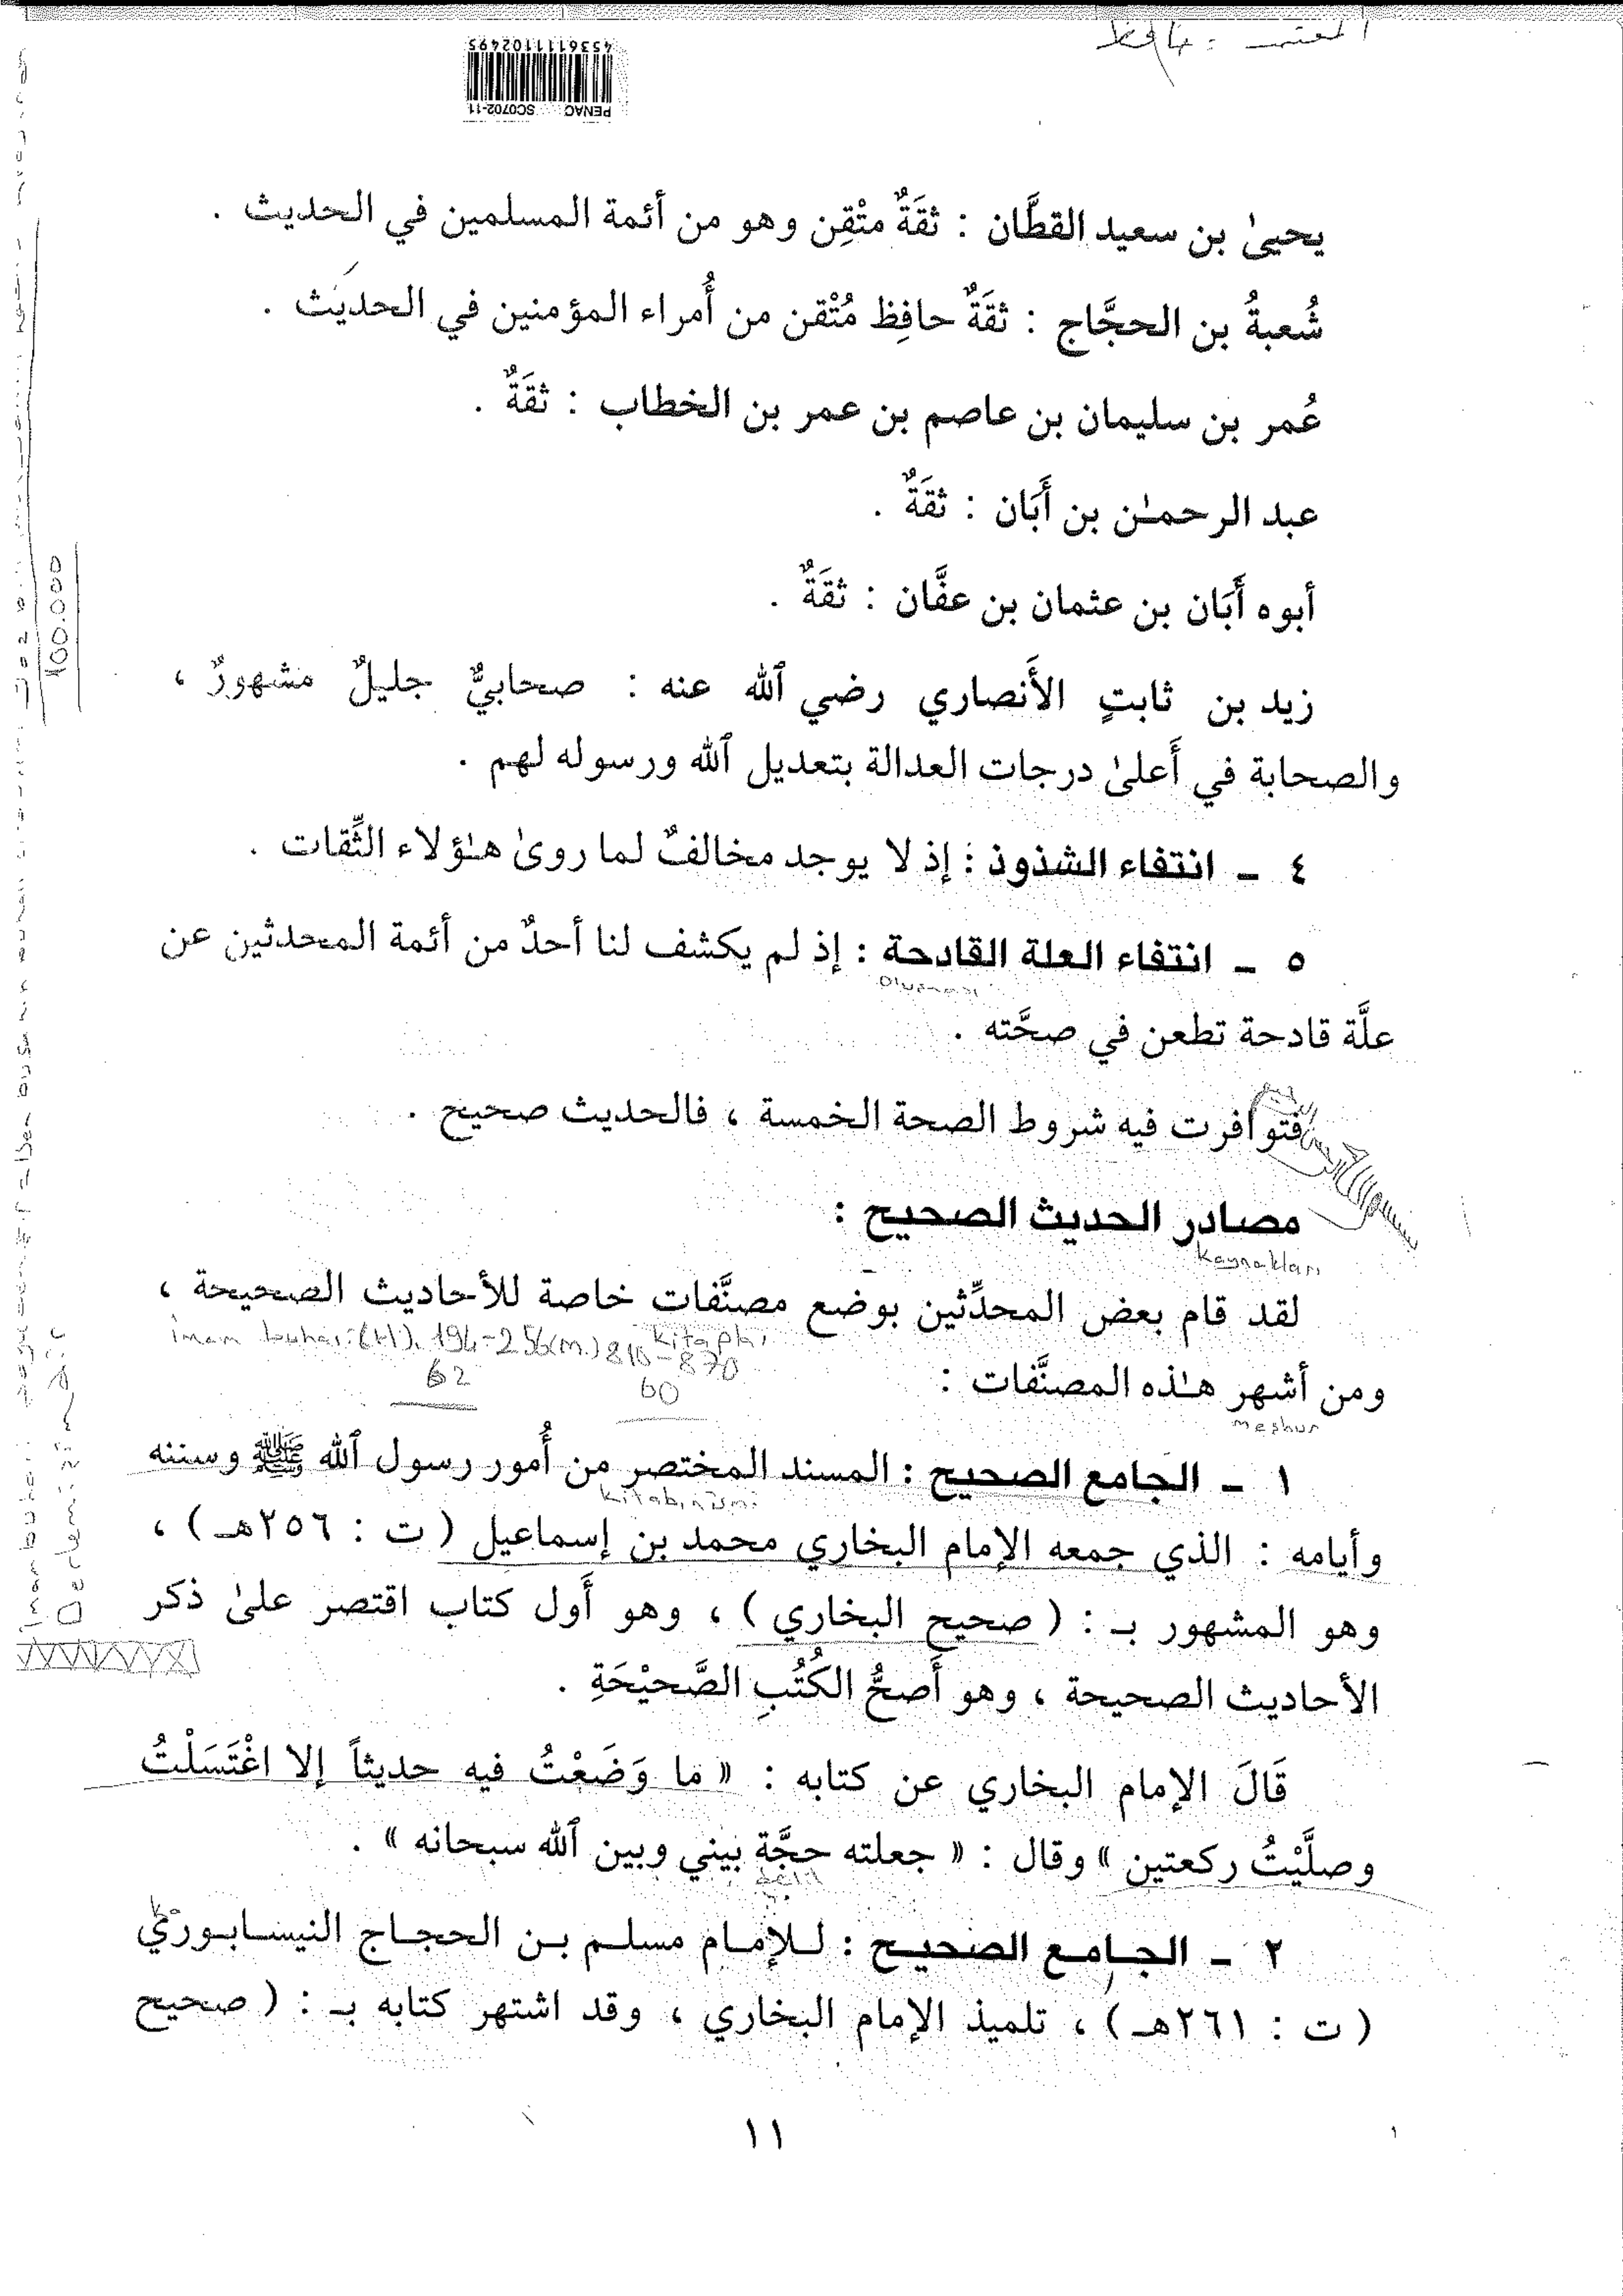 المعتمد : حافظ
453611110249S
PENAC SC0702-11
يحيىٰ بن سعيد القطَّان : ثقَةٌ متْقِن وهو من أئمة المسلمين في الحديث .
شُعبةُ بن الحجَّاج : ثقَةٌ حافِظ مُتْقن من أُمراء المؤمنين في الحديث .
عُمر بن سليمان بن عاصم بن عمر بن الخطاب : ثقَةٌ .
عبد الرحمـٰن بن أَبَان : ثقَةٌ .
أبوه أَبَان بن عثمان بن عفَّان : ثقَةٌ .
زيد بن ثابتٍ الأَنصاري رضي ٱلله عنه : صحابيٌّ جليلٌ مشهورٌ ،
والصحابة في أَعلىٰ درجات العدالة بتعديل ٱلله ورسوله لهم .
٤ ـ انتفاء الشذوذ : إذ لا يوجد مخالفٌ لما روىٰ هـٰؤلاء الثِّقات .
٥ ـ انتفاء العلة القادحة : إذ لم يكشف لنا أحدٌ من أئمة المحدثين عن
علَّة قادحة تطعن في صحَّته .
فتوافرت فيه شروط الصحة الخمسة ، فالحديث صحيح .
مصادر الحديث الصحيح :
Kaynakları
لقد قام بعض المحدِّثين بوضع مصنَّفات خاصة للأحاديث الصحيحة ،
imam buhari (H). 194-256 (m.) 810-870
kitapları
62
60
ومن أشهر هـٰذه المصنَّفات :
meshur
١ ـ الجامع الصحيح : المسند المختصر من أُمور رسول ٱلله ﷺ وسننه
kitabın ismi
وأيامه : الذي جمعه الإمام البخاري محمد بن إسماعيل ( ت : ٢٥٦هـ ) ،
وهو المشهور بـ : ( صحيح البخاري ) ، وهو أَول كتاب اقتصر علىٰ ذكر
الأحاديث الصحيحة ، وهو أَصحُّ الكُتُبِ الصَّحيْحَةِ .
قَالَ الإمام البخاري عن كتابه : « ما وَضَعْتُ فيه حديثاً إلا اغْتَسَلْتُ
وصلَّيْتُ ركعتين » وقال : « جعلته حجَّة بيني وبين ٱلله سبحانه » .
٢ ـ الجـامـع الصحيـح : لـلإمـام مسلـم بـن الحجـاج النيسـابـوري
( ت : ٢٦١هـ ) ، تلميذ الإمام البخاري ، وقد اشتهر كتابه بـ : ( صحيح
١١
100.000